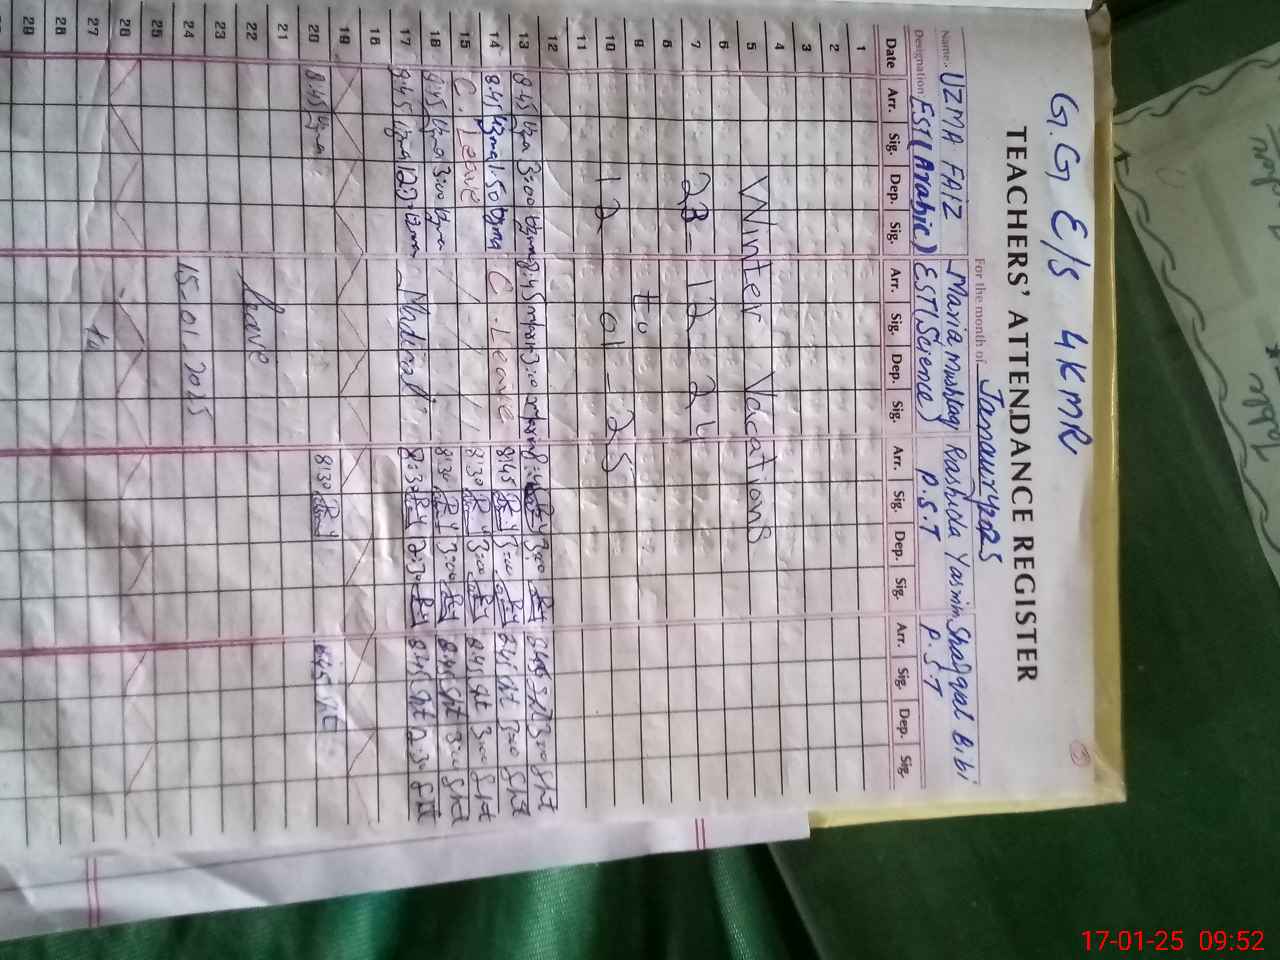 G.G E/S 4KMR
TEACHERS' ATTENDANCE REGISTER
For the month of Janauary 2025
Name:- UZMA FAIZ Maria Mushtaq Rashida Yasmin Shagufal Bibi
Designation: EST(Arabic) EST(Science) P.S.T P.S.T
Date Arr. Sig. Dep. Sig. Arr. Sig. Dep. Sig. Arr. Sig. Dep. Sig. Arr. Sig. Dep. Sig.
1
2
3
4
5 Winter Vacations
6
7 23-12-24
8
9 to
10 12-01-25
11
12
13 8.45 Uzma 3:00 Uzma 8:45 3:00 3:00 3:00
14 8.45 Uzma 1.50 Uzma C. Leave 8:45 R.Y 3:00 R.Y 8:45 3:00
15 C. Leave 8:30 R.Y 3:00 R.Y 8:45 3:00
16 8:45 Uzma 3:00 Uzma 8:30 R.Y 3:00 R.Y 8:45 3:00
17 8:45 Uzma 12:30 Uzma 8:30 R.Y 12:30 R.Y 8:45 12:30
18
19
20 8.45 Uzma 8:30 8:45
21
22 Leave
23
24 15-01-2025
25
26
27 to
28
29
17-01-25 09:52